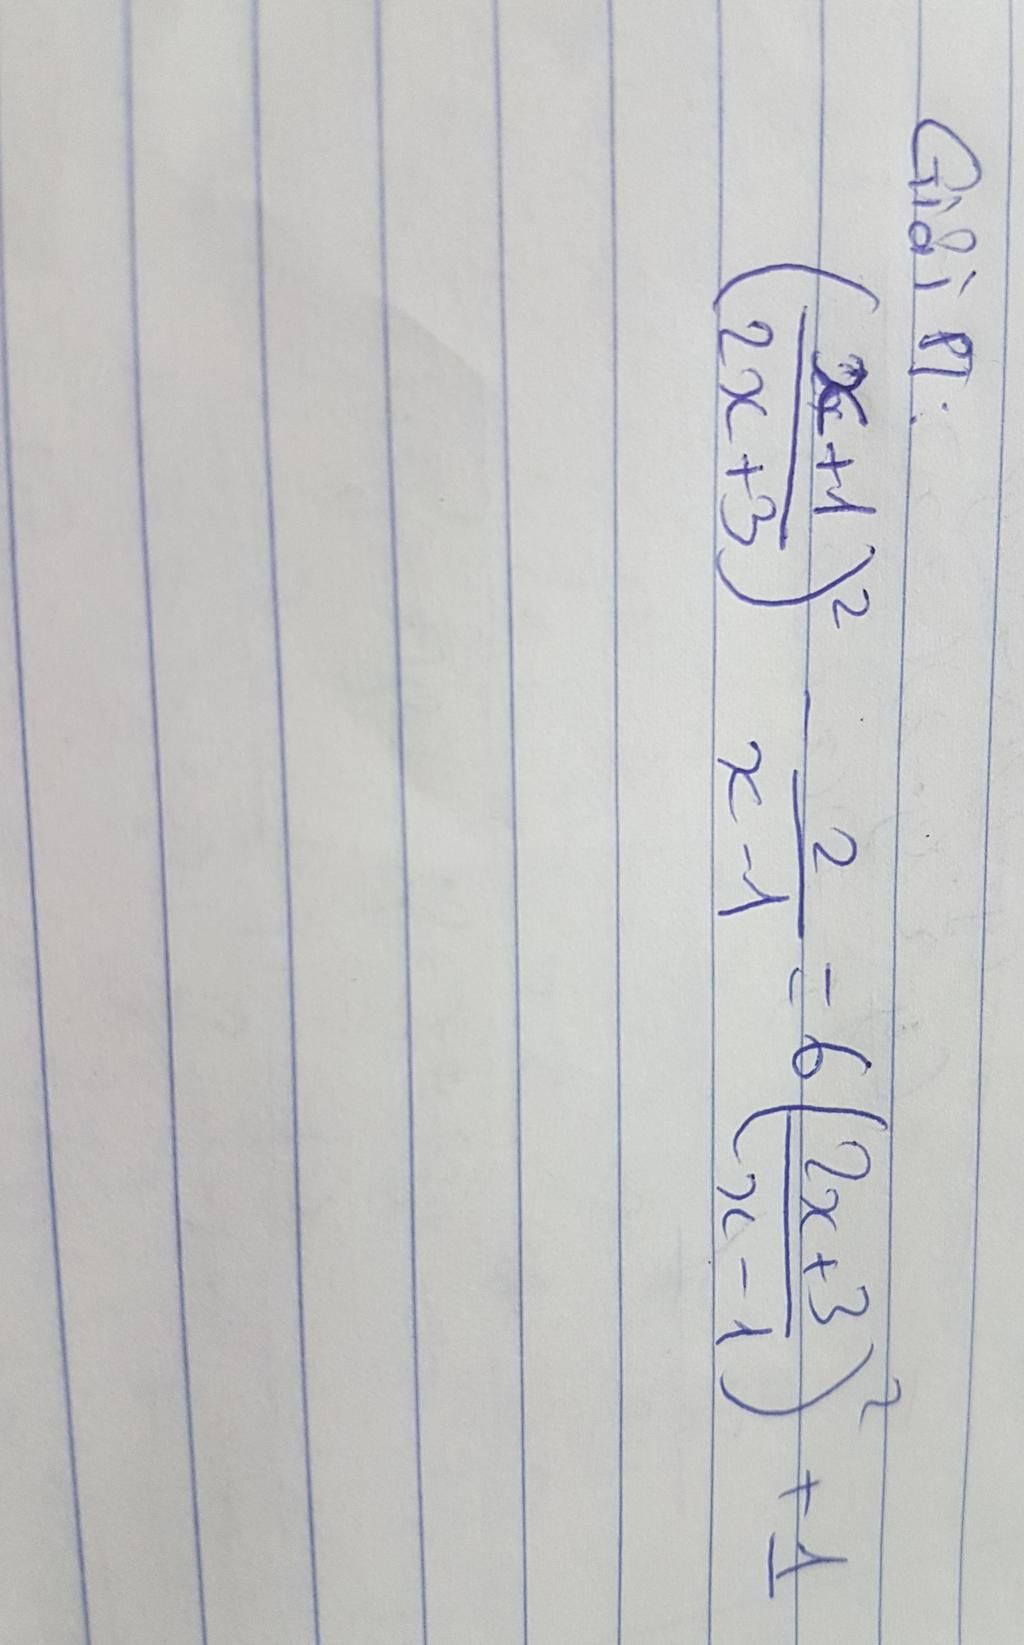 Giải PT:
(\frac{x+1}{2x+3})^2 - \frac{2}{x-1} = 6(\frac{2x+3}{x-1})^2 + 1